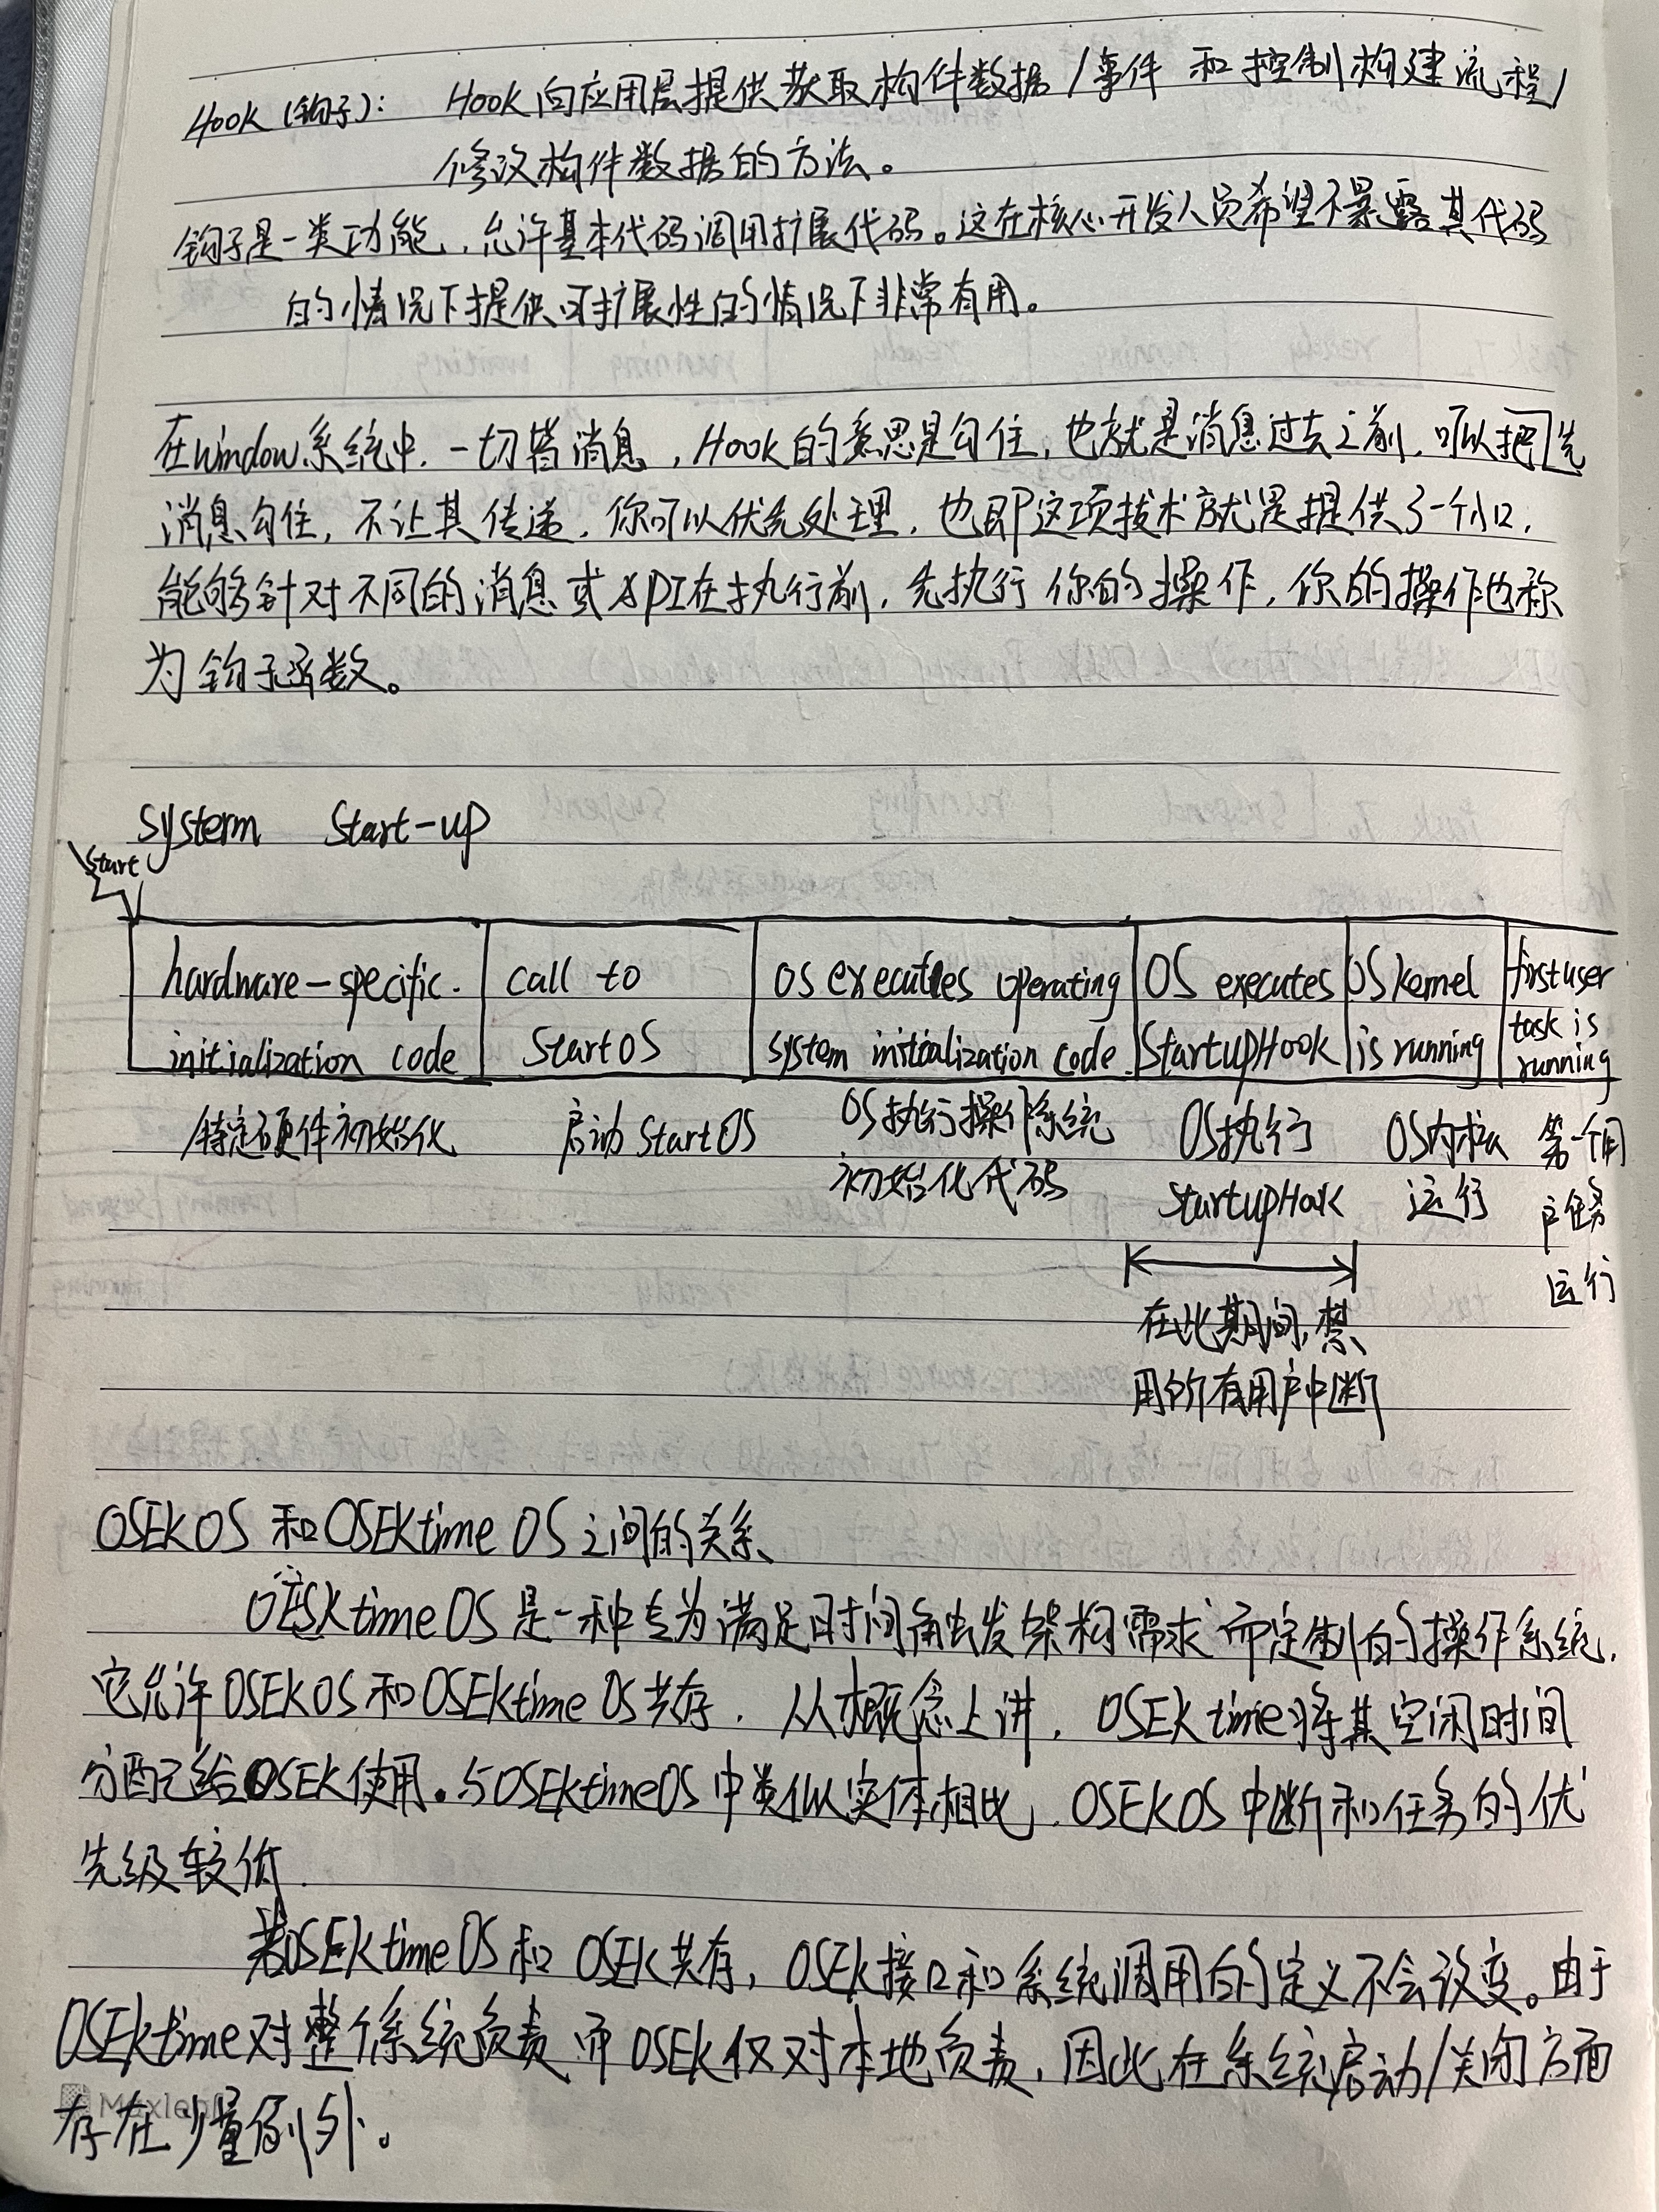 Hook (钩子): Hook向应用层提供获取构件数据/事件 和控制构建流程/
修改构件数据的方法。
钩子是一类功能,允许基本代码调用扩展代码。这在核心开发人员希望不暴露其代码
的情况下提供可扩展性的情况下非常有用。
在window系统中.一切皆消息,Hook的意思是勾住,也就是消息过去之前,可以把先
消息勾住,不让其传递,你可以优先处理,也即这项技术就是提供了一个小口,
能够针对不同的消息或API在执行前,先执行你的操作,你的操作也称
为钩子函数。
System Start-up
Start
hardware-specific. call to OS executes operating OS executes OS kernel first user
initialization code StartOS system initialization code StartupHook is running task is
running
特定硬件初始化 启动StartOS OS执行操作系统 OS执行 OS内核 第一个用
初始化代码 StartupHook 运行 户任务
运行
在此期间,禁
用的所有用户中断
OSEKOS 和OSEKtime OS之间的关系
OESKtime OS 是一种专为满足时间触发架构需求而定制的操作系统.
它允许OSEKOS和OSEKtime OS共存.从概念上讲,OSEKtime将其空闲时间
分配已给OSEK使用.与OSEKtimeOS中类似实体相比,OSEKOS中断和任务的优
先级较低.
若OSEKtime OS和 OSEK共存,OSEK接口和系统调用的定义不会改变。由于
OSEKtime对整个系统负责而OSEK仅对本地负责,因此在系统启动/关闭方面
存在少量例外。
Maxleaf